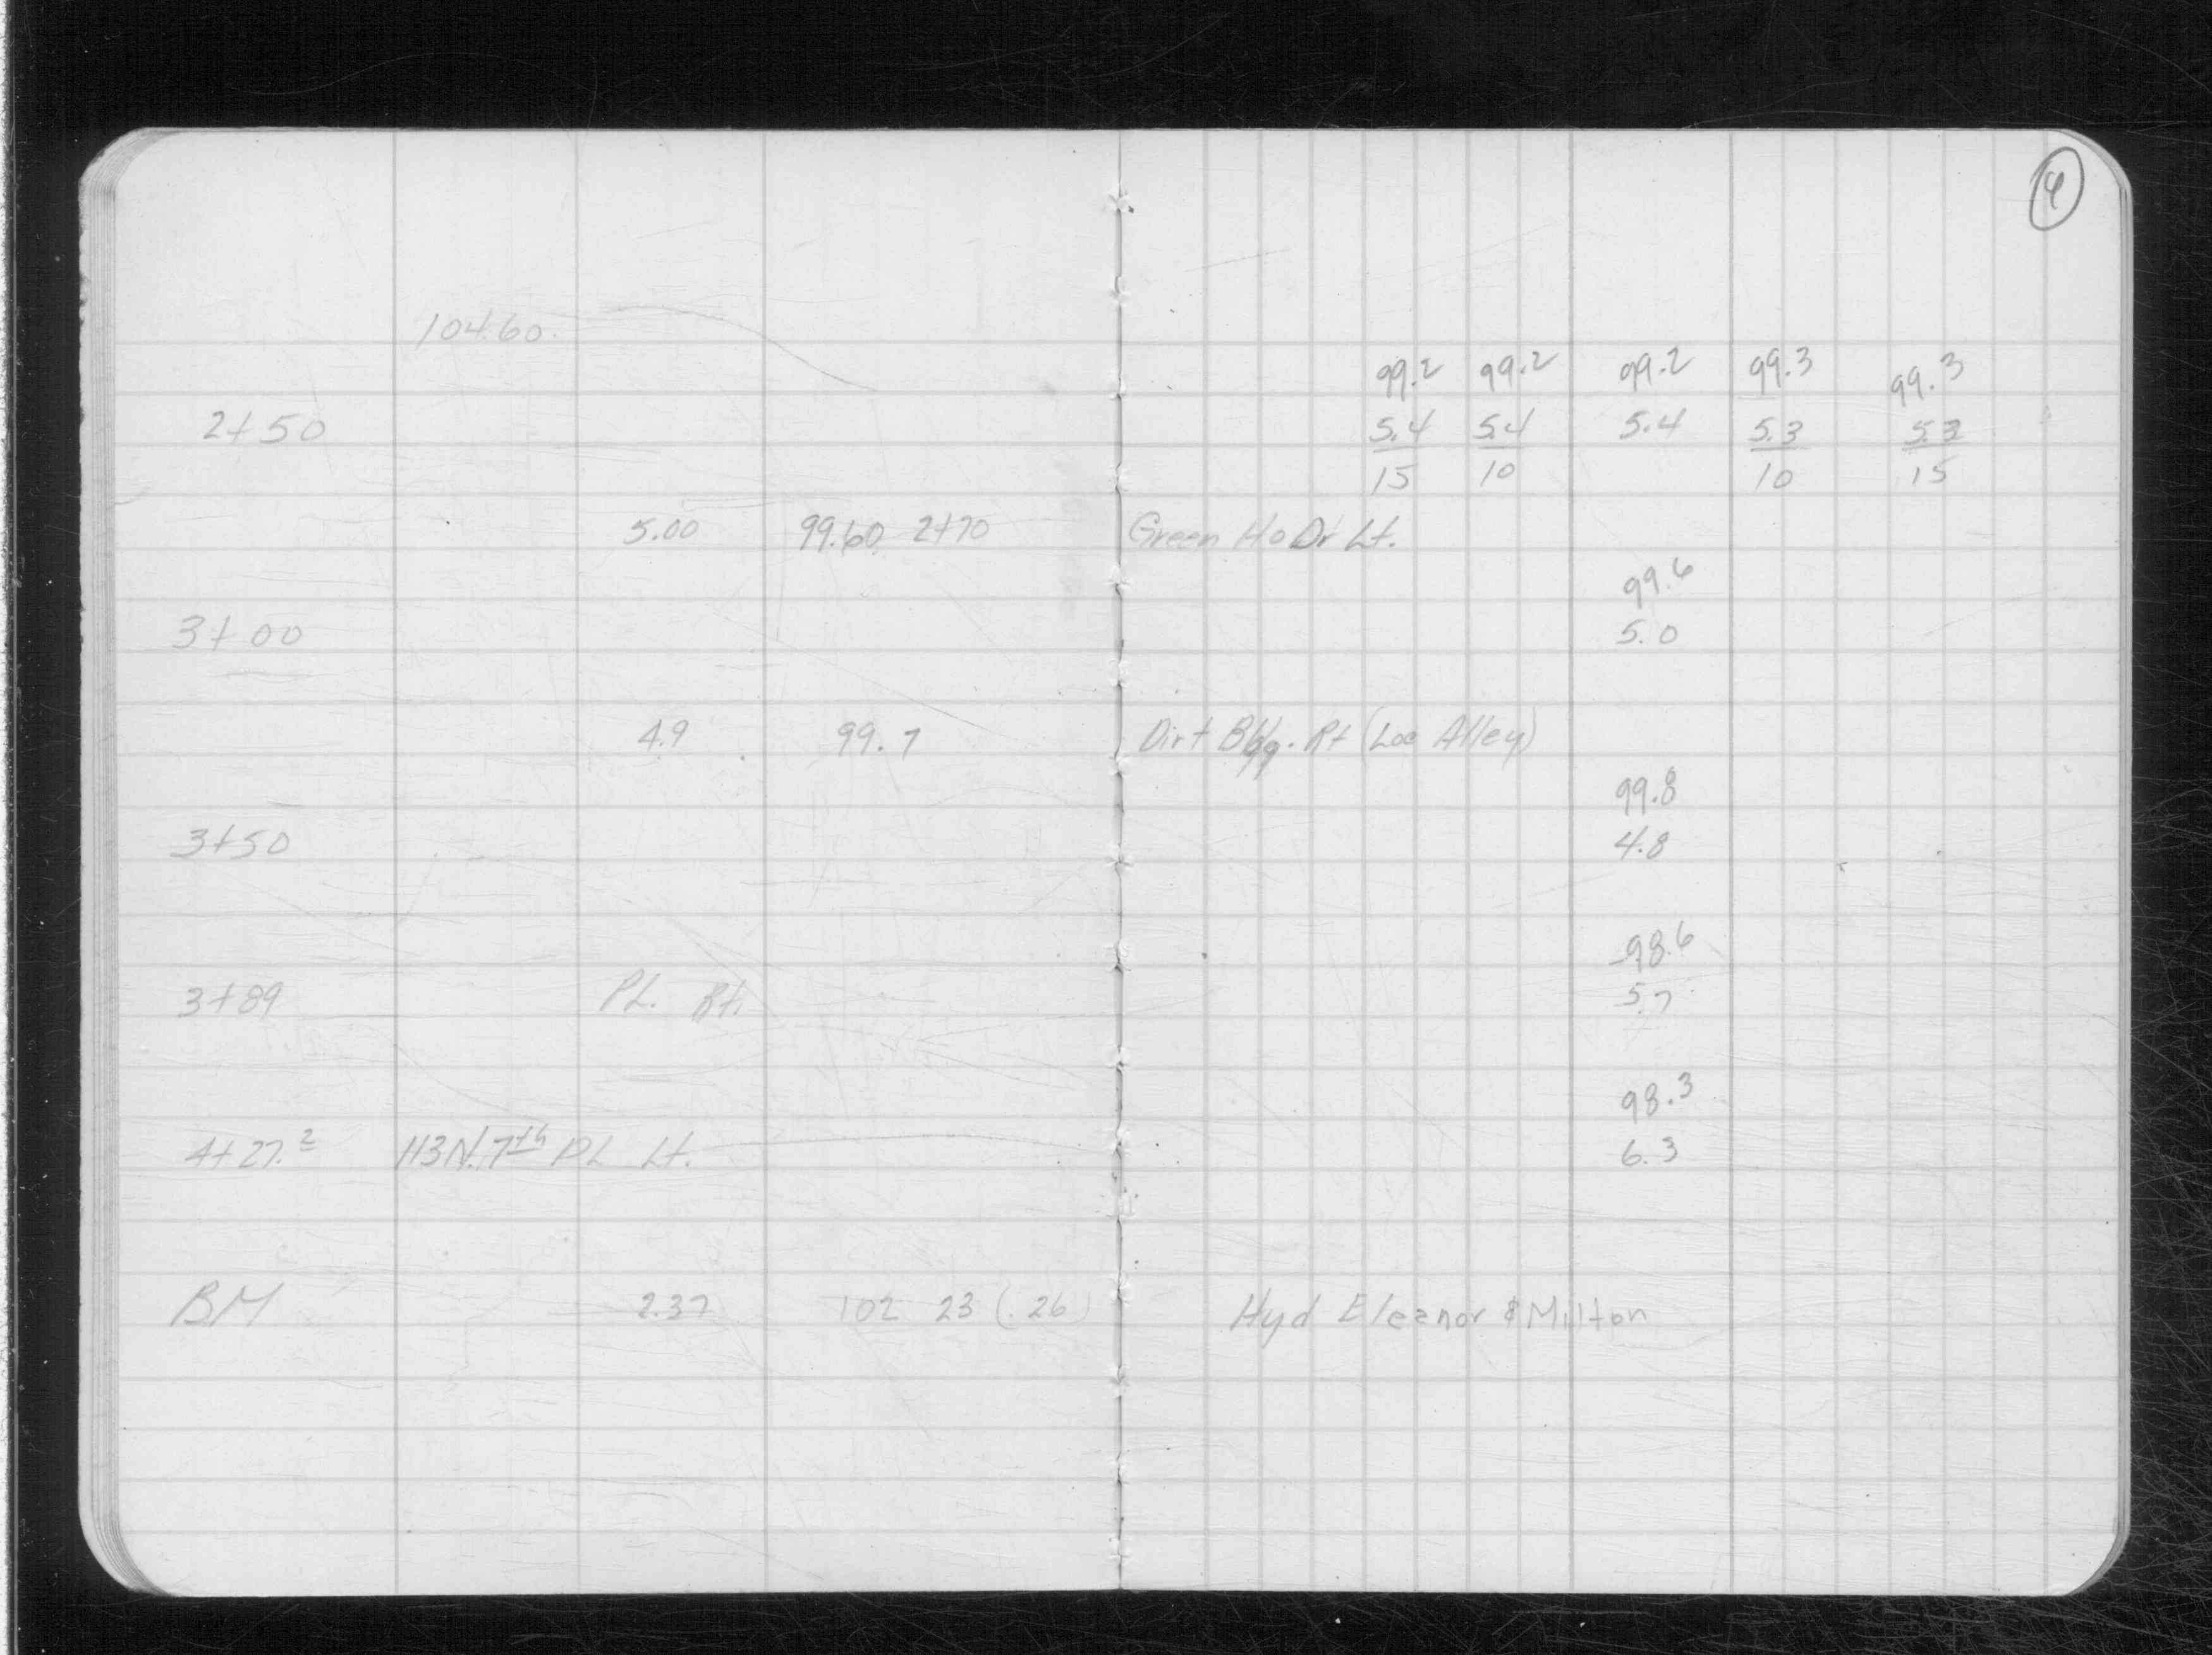 4
104.60
99.2 99.2 99.2 99.3 99.3
2+50 5.4 5.4 5.4 5.3 5.3
15 10 10 15
5.00 99.60 2+70 Green Ho Dr Lt.
99.6
3+00 5.0
4.9 99.7 Dirt Bldg. Rt (Loc Alley)
99.8
3+50 4.8
98.6
3+89 PL. Rt. 5.7
98.3
4+27.2 113 N. 7th PL Lt. 6.3
BM 2.37 102 23 (.26) Hyd Eleanor & Milton